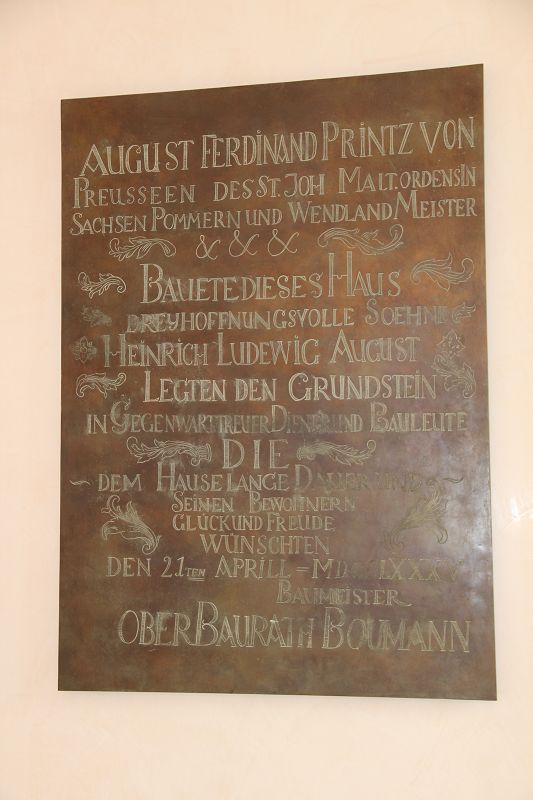 AUGUST FERDINAND PRINTZ VON
PREUSSEEN DES ST. JOH MALT. ORDENS IN
SACHSEN POMMERN UND WENDLAND MEISTER
& & &
BAUETE DIESES HAUS
DREY HOFFNUNGSVOLLE SOEHNE
HEINRICH LUDEWIG AUGUST
LEGTEN DEN GRUNDSTEIN
IN GEGENWART TREUER DIENER UND BAULEUTE
DIE
DEM HAUSE LANGE DAUER UND
SEINEN BEWOHNERN
GLÜCK UND FREUDE
WÜNSCHTEN
DEN 21TEN APRILL = MDCCLXXXV
BAUMEISTER
OBER BAURATH BOUMANN